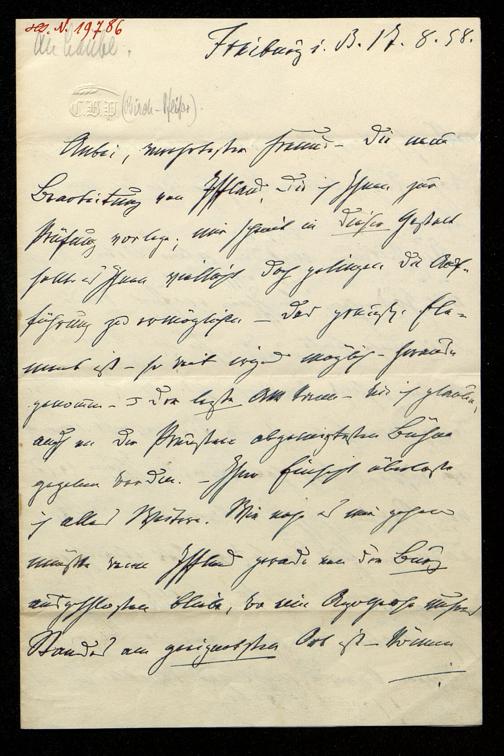 H. N. 19786
An Laube.
Freiburg i. B. 17. 8. 58.
C.B.P (Birch-Pfeiffer)
Anbei, verehrtester Freund – die neue
Bearbeitung von Iffland, die ich Ihnen zur
Prüfung vorlege; mir scheint in dieser Gestalt
sollte es Ihnen vielleicht doch gelingen die Auf-
führung zu ermöglichen – das Ele-
ment ist – so weit irgend möglich – heraus
genommen – der letzte Akt kann – wie ich glaube,
auch an der abgeneigtesten Bühne
gegeben werden. – Ihrer Einsicht überlasse
ich alles Weitere. Wie es mir gehen
müßte wenn Iffland gerade von der Burg
ausgeschlossen bliebe, wo eine Apotheose unseres
Standes am geeignetsten Ort ist – können